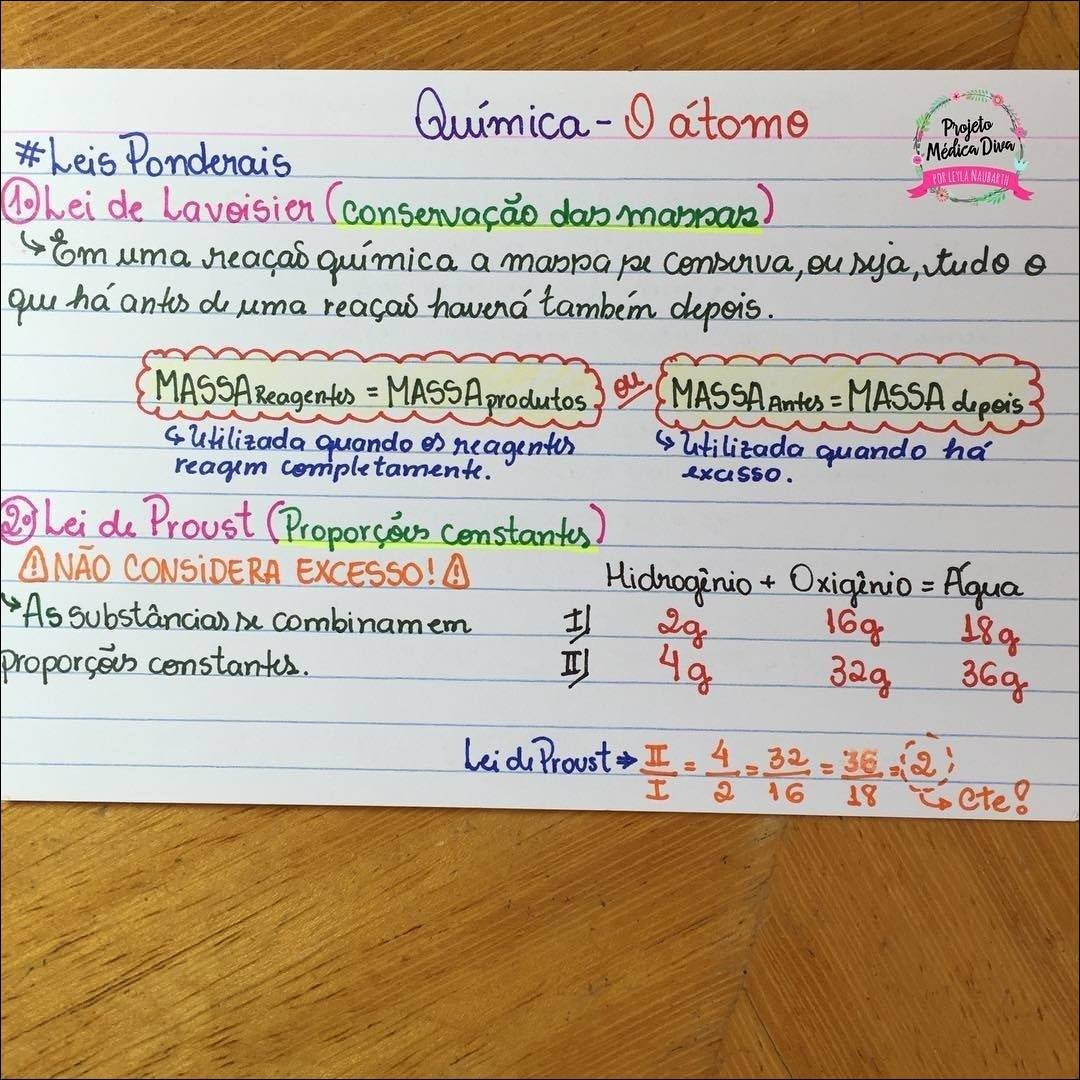 Química - O átomo
Projeto
Médica Diva
POR LEYLA NAUBARTH
#Leis Ponderais
1º Lei de Lavoisier (conservação das massas)
↳ Em uma reação química a massa se conserva, ou seja, tudo o
que há antes de uma reação haverá também depois.
MASSA Reagentes = MASSA produtos ou MASSA Antes = MASSA depois
↳ Utilizada quando os reagentes
reagem completamente.
↳ Utilizada quando há
excesso.
2º Lei de Proust (Proporções constantes)
⚠NÃO CONSIDERA EXCESSO!⚠
↳ As substâncias se combinam em
proporções constantes.
Hidrogênio + Oxigênio = Água
I) 2g 16g 18g
II) 4g 32g 36g
Lei de Proust → II/I = 4/2 = 32/16 = 36/18 = 2
↳ Cte!